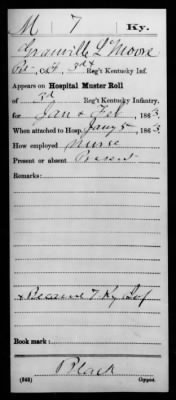 M 7 Ky.
Granville L Moore
Pvt, Co. 3rd Reg't Kentucky Inf.
Appears on Hospital Muster Roll
of 3d Reg't Kentucky Infantry,
for Jan & Feb, 1863.
When attached to Hosp. Jany 5, 1863.
How employed Nurse
Present or absent Present
Remarks:
* Became 7 Ky Inf
Book mark:
Black
(848) Copyist.